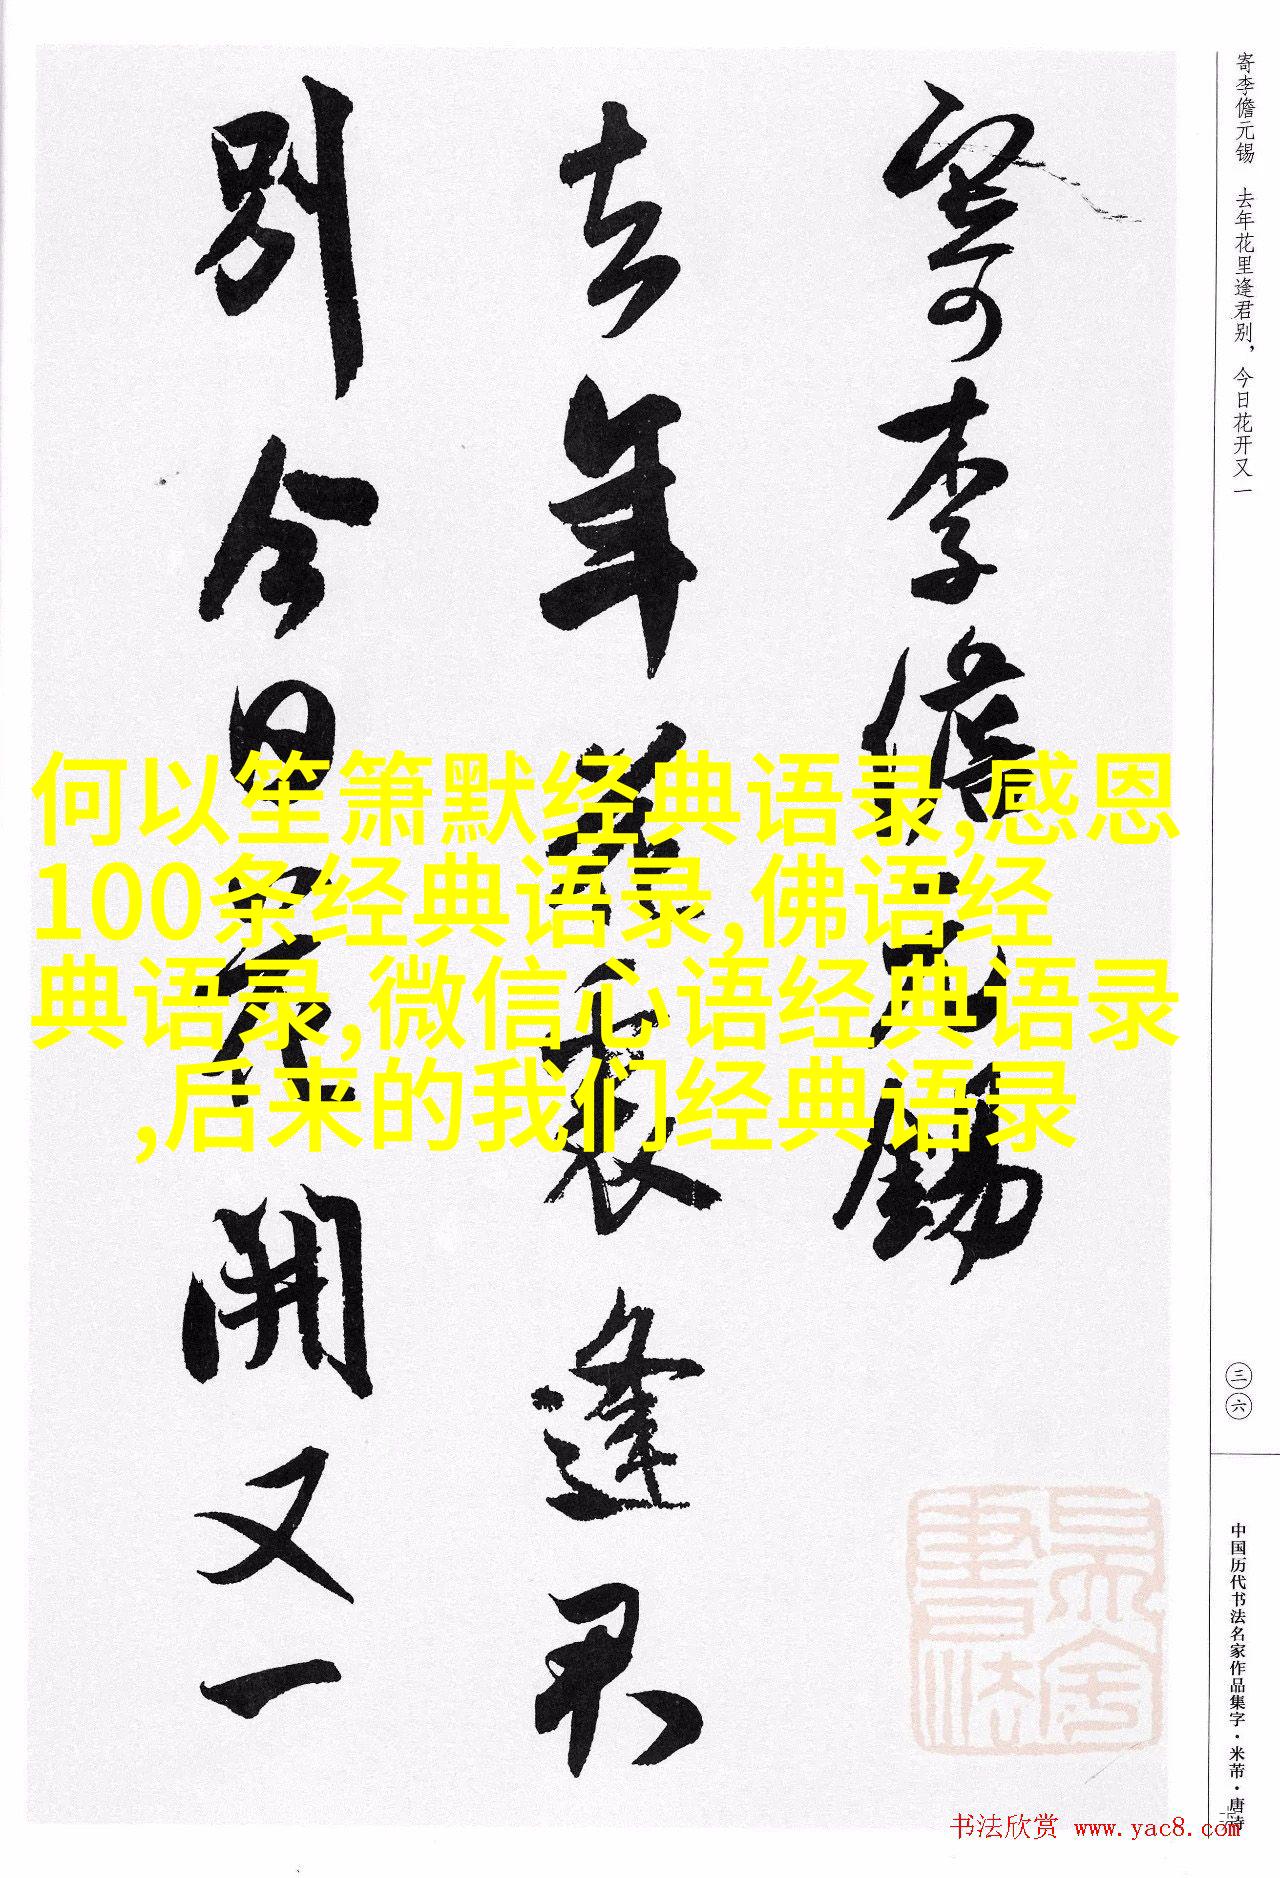 寄李儋元锡　去年花里逢君别，今日花开又一
寄李儋元錫
去年花裏逢君
别今日花開又一
何以笙箫默经典语录,感恩
100条经典语录,佛语经
典语录,微信心语经典语录
,后来的我们经典语录
三六
中国历代书法名家作品集字·米芾·唐诗
书法欣赏 www.yac8.com